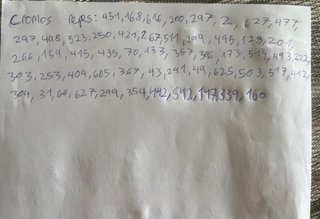 Cromos reps: 451,168,616,200,297, 2, 627,477,
297,448,525,250,421,267,511,299,495,128,201,
266,159,415,435,70,133,357,396,173,519,493,222,
303,253,409,605,367,43,241,49,625,503,517,412,
304,31,66,627,299,354,442,512,147,339,160